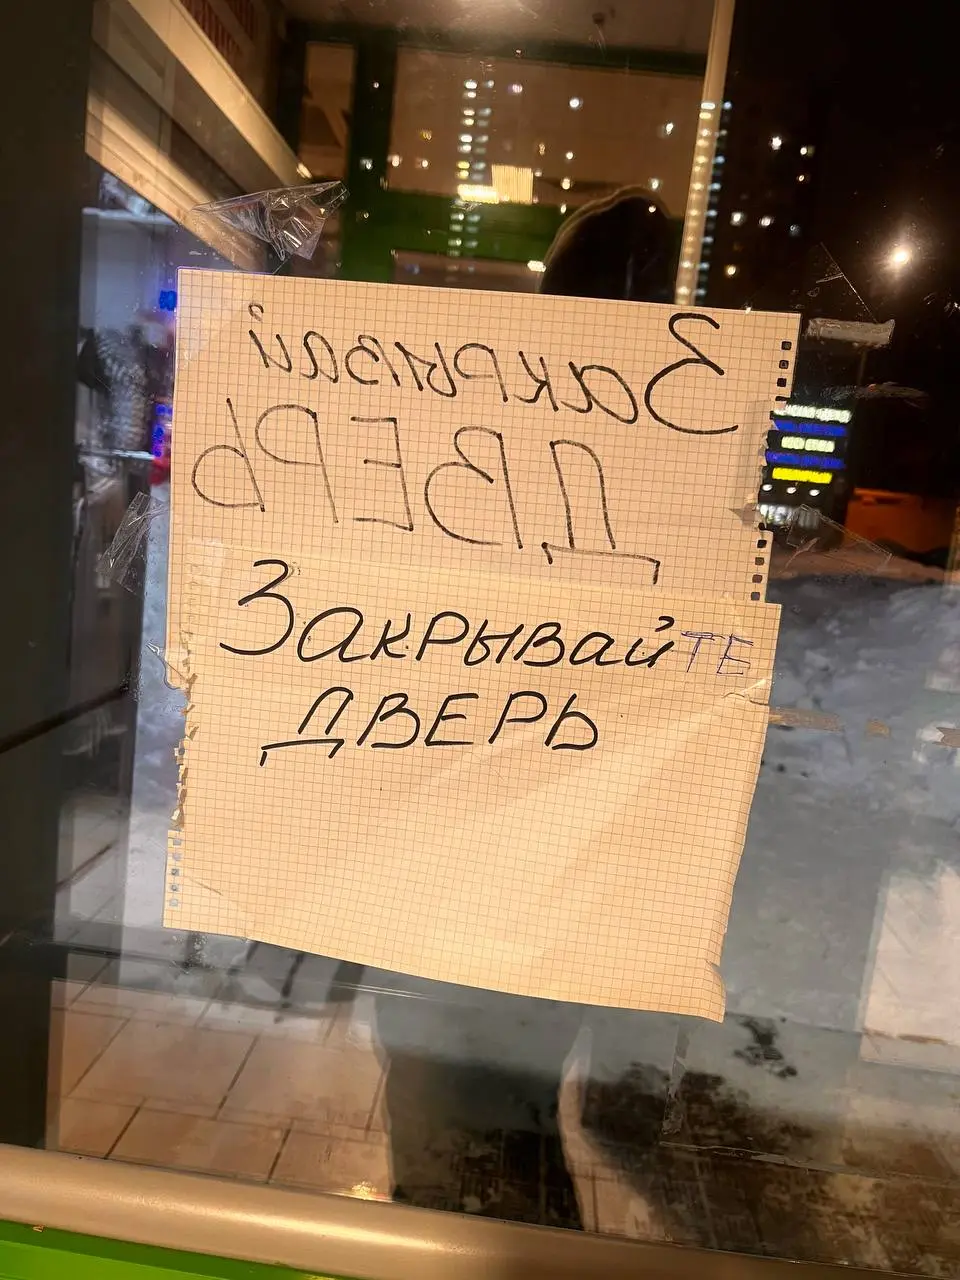 Закрывай
ДВЕРЬ
ЗакРЫВайТЕ
ДВЕРЬ